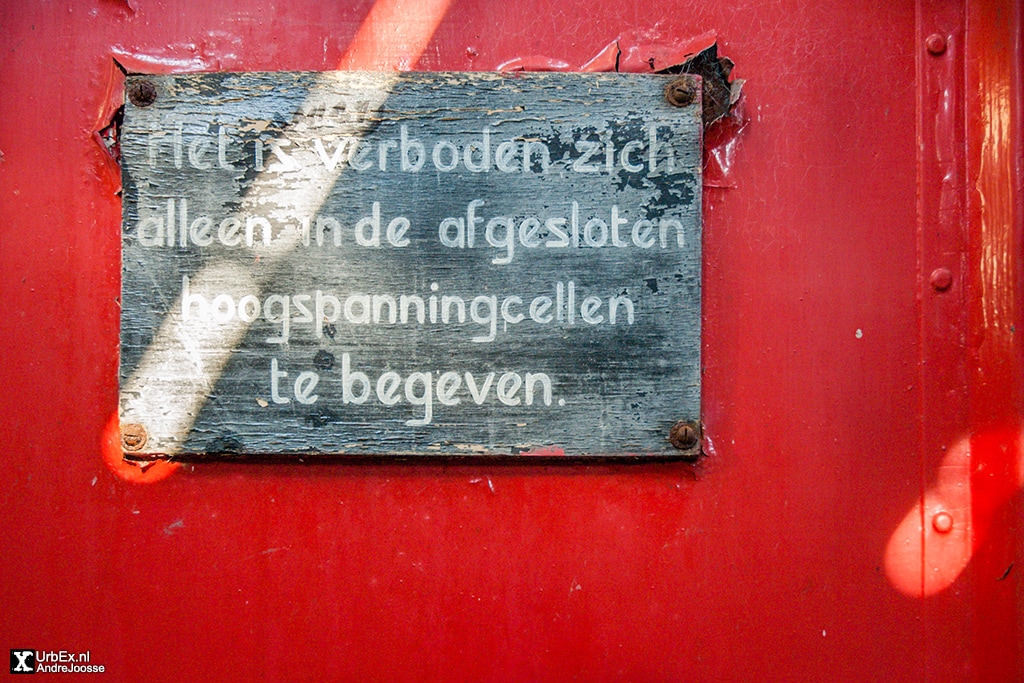 Het is verboden zich
alleen in de afgesloten
hoogspanningcellen
te begeven.
UrbEx.nl
AndreJoosse